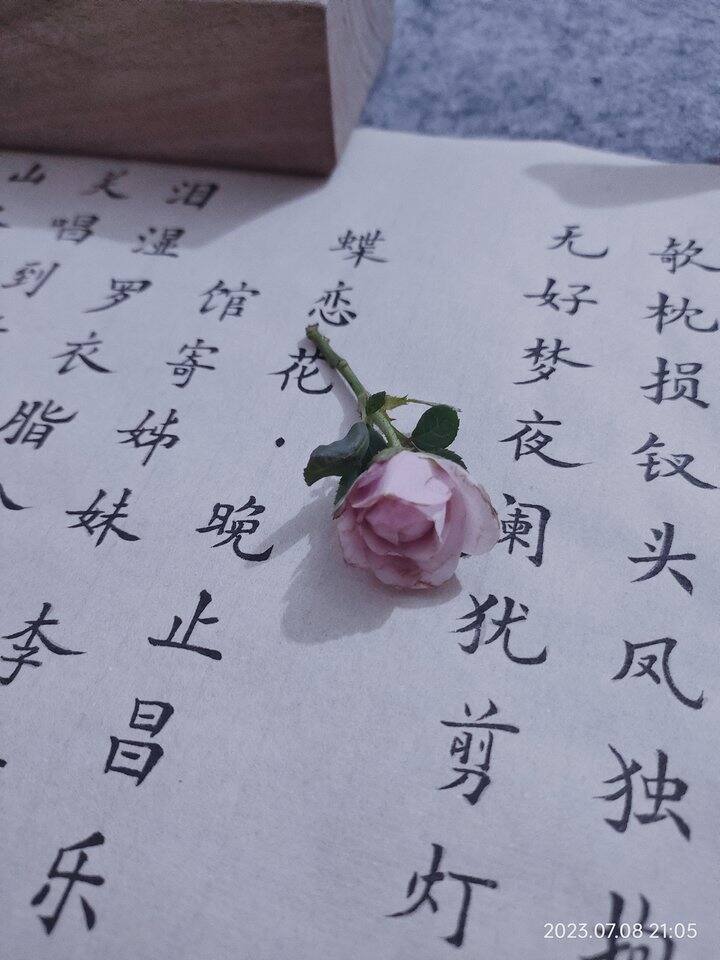 欹枕损钗头凤独
无好梦夜阑犹剪灯
蝶恋花·晚止昌乐
馆寄姊妹 李
泪湿罗衣脂
关唱到
山
2023.07.08 21:05